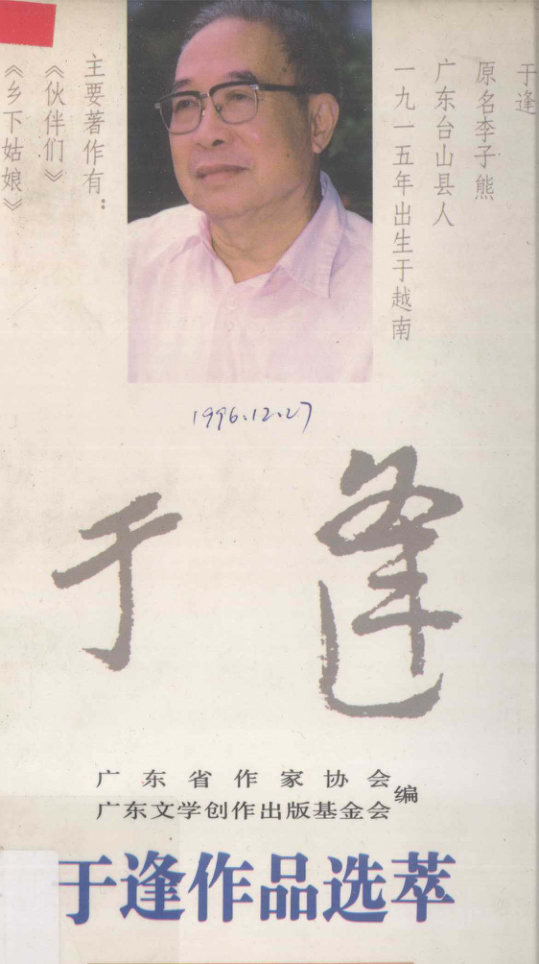 于逢
原名李子熊
广东台山县人
一九一五年出生于越南
主要著作有：
《伙伴们》
《乡下姑娘》
1996.12.27
于逢
广东省作家协会
广东文学创作出版基金会
编
于逢作品选萃